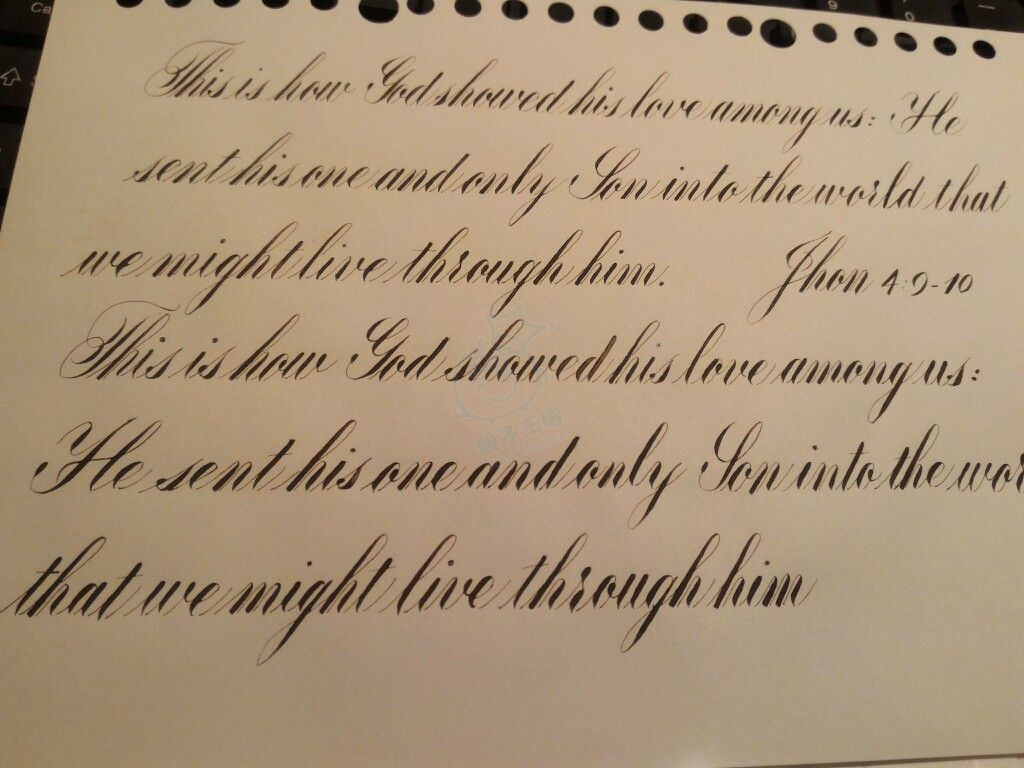 This is how God showed his love among us: He
sent his one and only Son into the world that
we might live through him. Jhon 4:9-10
This is how God showed his love among us:
He sent his one and only Son into the wor
that we might live through him